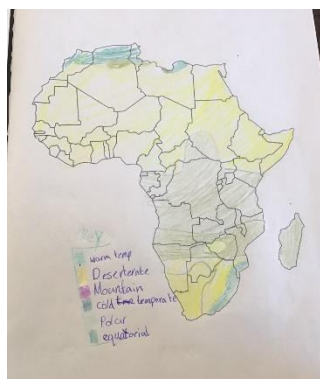 Key
warm temp
Deserterate
Mountain
cold temparate
Polar
equatorial